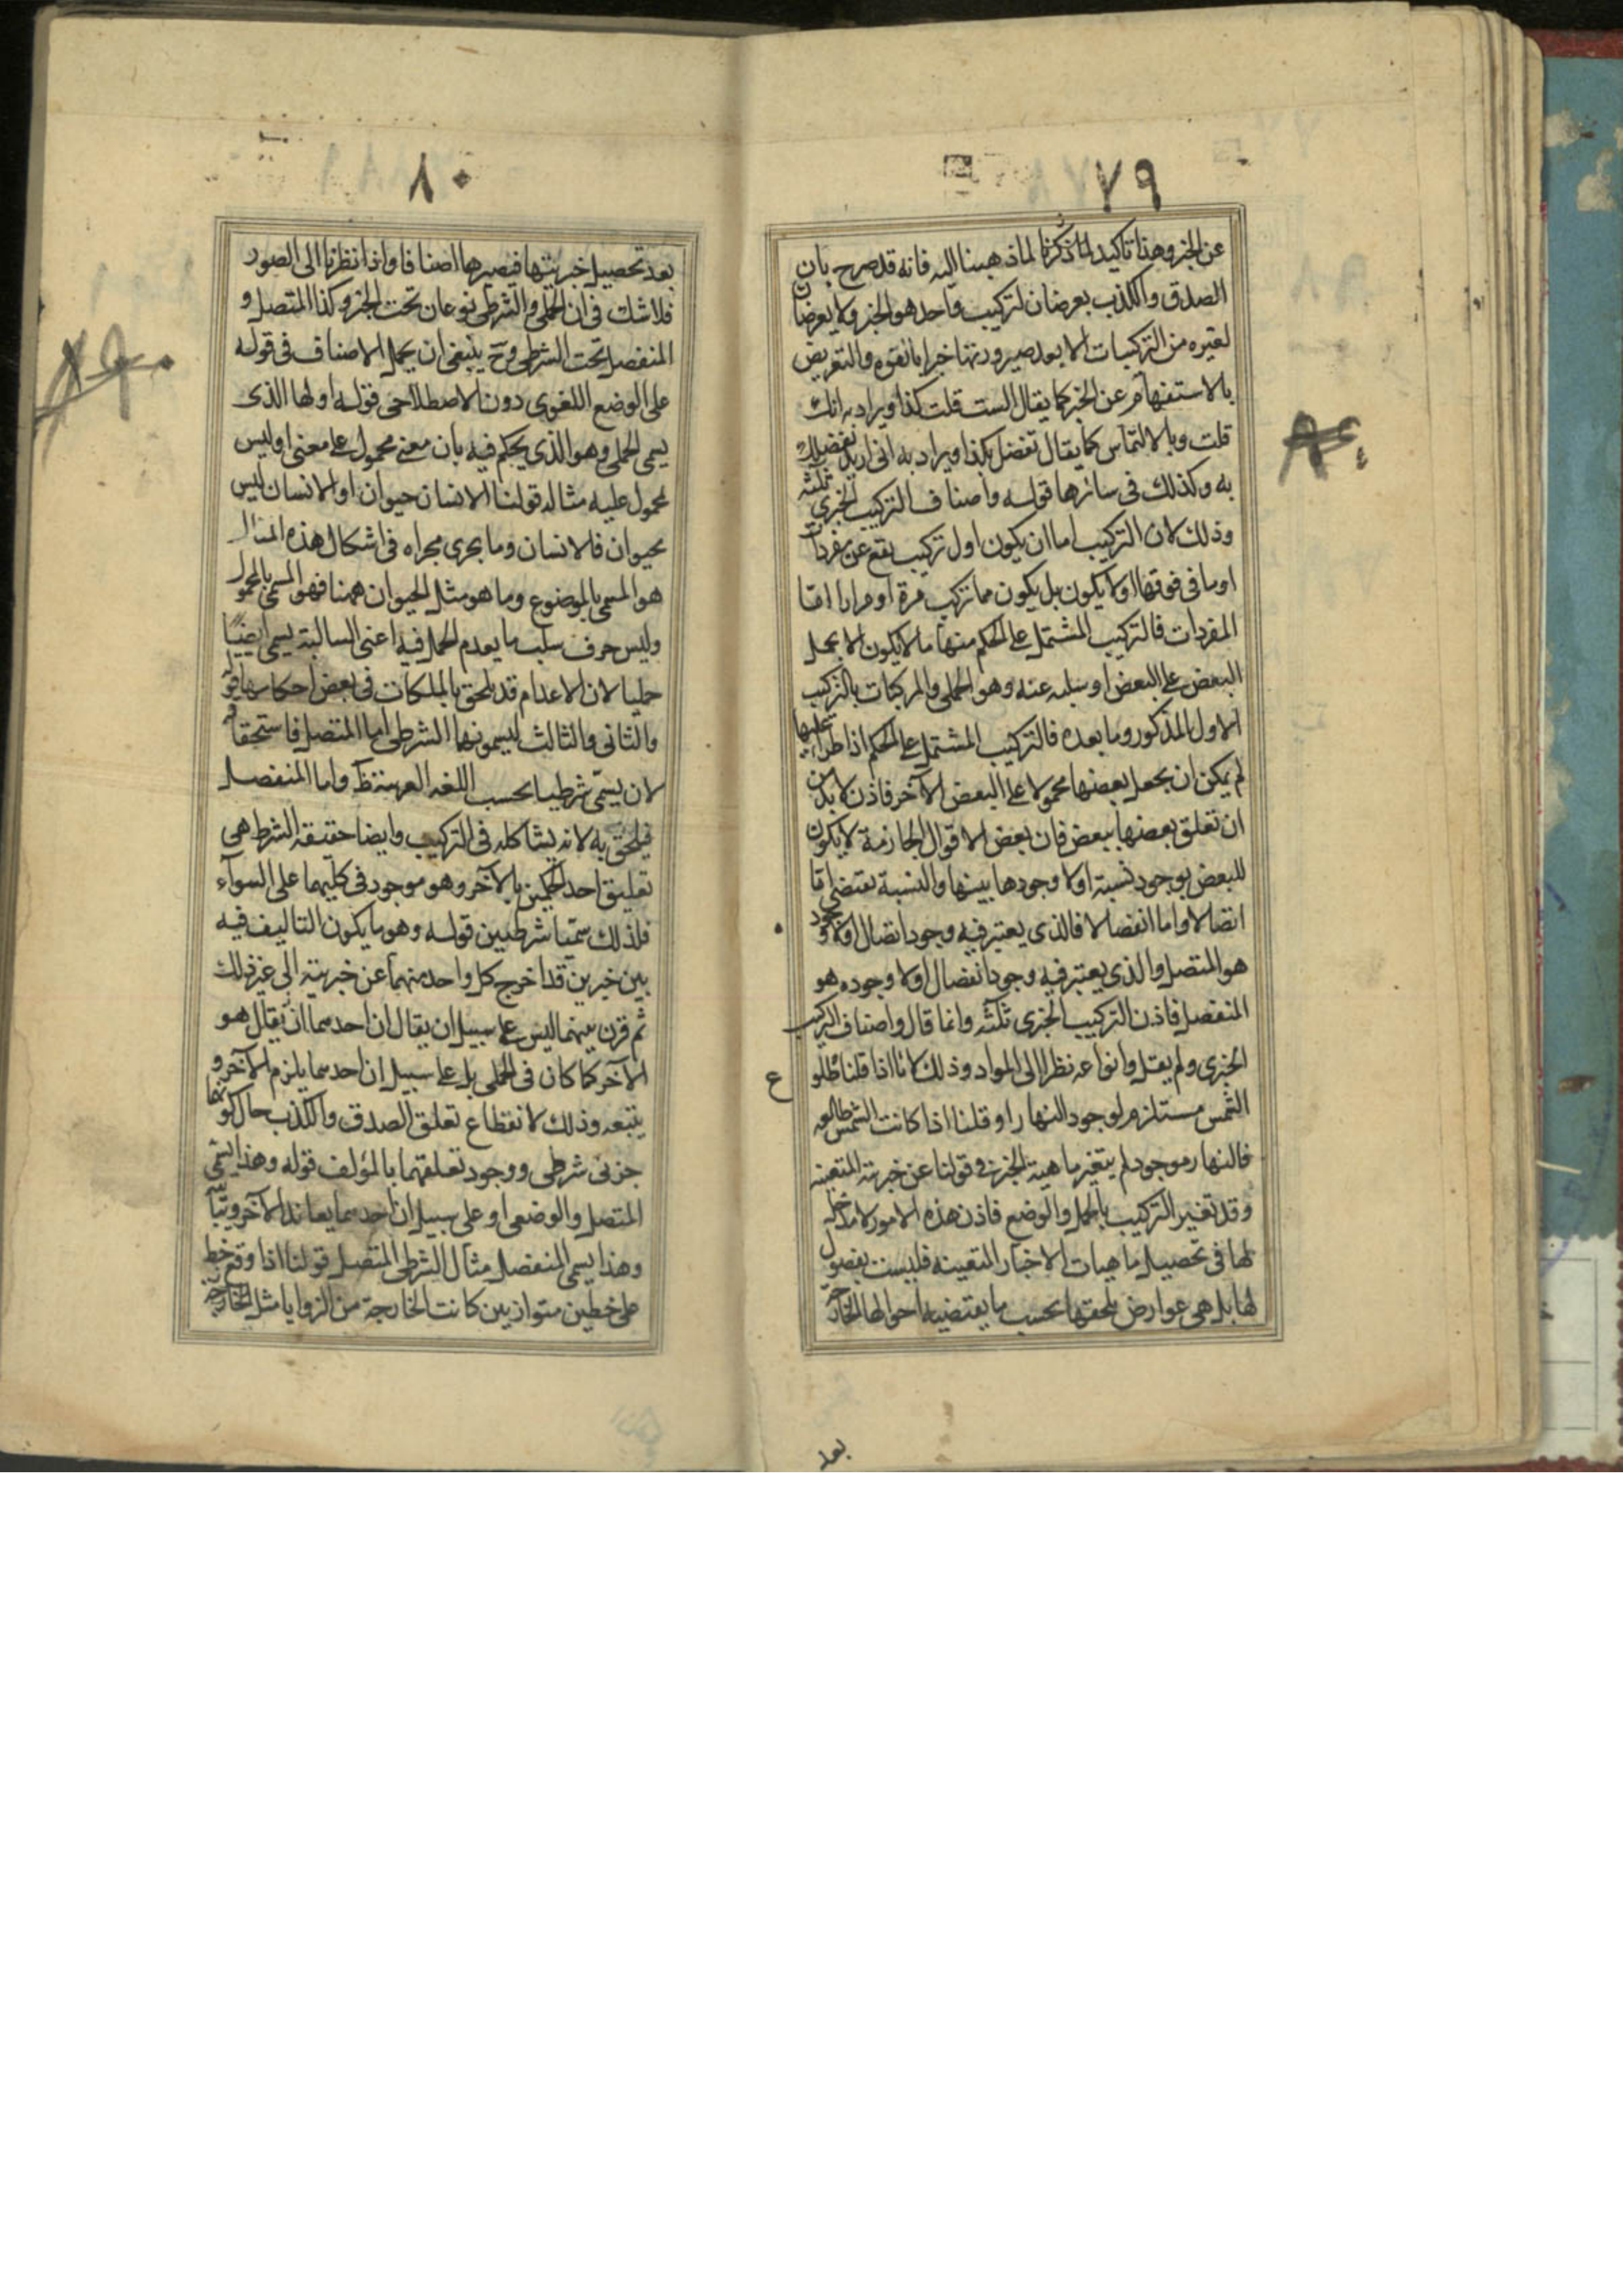 ٧٩
عن الخبر وهذا تاكيد لما ذكرنا لما ذهبنا اليه فانه قد صرح بان
الصدق والكذب يعرضان لتركيب واحد هو الخبر ولا يعرضان
لغيره من التركيبات الا بعد صيرورتها خبرا بالقوه والتعريض
بالاستفهام عن الخبر كما يقال الست قلت كذا ويراد به انك
قلت وبالالتماس كما يقال تفضل بكذا ويراد به انى اريد تفضلك
به وكذلك فى سائرها قوله واصناف التركيب الخبرى ثلثه
وذلك لان التركيب اما ان يكون اول تركيب يقع عن مفردات
او ما فى قوتها او لا يكون بل يكون مما تركب مرة او مرارا اما
المفردات فالتركيب المشتمل على الحكم منها ما لا يكون الا بحمل
البعض على البعض او سلبه عنه وهو الحملى والمركبات بالتركيب
الاول المذكور وما بعده فالتركيب المشتمل على الحكم اذا طرا عليها
لم يمكن ان يجعل بعضها محمولا على البعض الآخر فاذن لابد من
ان تعلق بعضها ببعض فان بعض الاقوال الجازمة لا يكون
للبعض بوجود نسبة او لا وجودها بينها والنسبة تقتضى اما
اتصالا واما انفصالا فالذى يعتبر فيه وجود اتصال او لا وجود
هو المتصل والذى يعتبر فيه وجود انفصال او لا وجوده هو
المنفصل فاذن التركيب الخبرى ثلثه وانما قال واصناف التركيب
الخبرى ولم يقل وانواعه نظرا الى المواد وذلك لانا اذا قلنا طلوع
الشمس مستلزم لوجود النهار او قلنا اذا كانت الشمس طالعه
فالنهار موجود لم يتغير ماهية الخبر فى قولنا عن خبريته المتعينه
وقد تغير التركيب بالحمل والوضع فاذن هذه الامور لا مدخل
لها فى تحصيل ماهيات الاخبار المتعينه فليست بفصول
لها بل هى عوارض تلحقها بحسب ما يقتضيه احوالها الخارجة
بعد
٨٠
بعد تحصيل خبريتها فيصيرها اصنافا واذا نظرنا الى الصور
فلا شك فى ان الحملى والشرطى نوعان تحت الخبر وكذا المتصل و
المنفصل تحت الشرطى وح ينبغى ان يحمل الاصناف فى قوله
على الوضع اللغوى دون الاصطلاحى قوله اولها الذى
يسمى الحملى وهو الذى يحكم فيه بان معنى محمول على معنى او ليس
بمحمول عليه مثاله قولنا الانسان حيوان او الانسان ليس
بحيوان فالانسان وما يجرى مجراه فى اشكال هذه المثال
هو المسمى بالموضوع وما هو مثل الحيوان ههنا فهو المسمى بالمحمول
وليس حرف سلب ما يعدم الحمل فيه اعنى السالبة يسمى ايضا
حمليا لان الاعدام قد تلحق بالملكات فى بعض احكامها قو
والثانى والثالث يسمونهما الشرطى اما المتصل فاستحقاقه
لان يسمى شرطيا بحسب اللغه العربية ظ واما المنفصل
فيلحق به لانه يشاكله فى التركيب وايضا حقيقه الشرط هى
تعليق احد الحكمين بالآخر وهو موجود فى كليهما على السوآء
فلذلك سميا شرطيين قوله وهو ما يكون التاليف فيه
بين خبرين قد اخرج كل واحد منهما عن خبريته الى غير ذلك
ثم قرن بينهما ليس على سبيل ان يقال ان احدهما ان يقال هو
الآخر كما كان فى الحملى بل على سبيل ان احدهما يلزم الآخر و
يتبعه وذلك لانقطاع تعلق الصدق والكذب حال كونهما
جزئى شرطى ووجود تعلقهما بالمؤلف قوله وهذا يسمى
المتصل والوضعى او على سبيل ان احدهما يعاند الآخر ويباينه
وهذا يسمى المنفصل مثال الشرطى المتصل قولنا اذا وقع خط
على خطين متوازيين كانت الخارجة من الزوايا مثل الخارجة